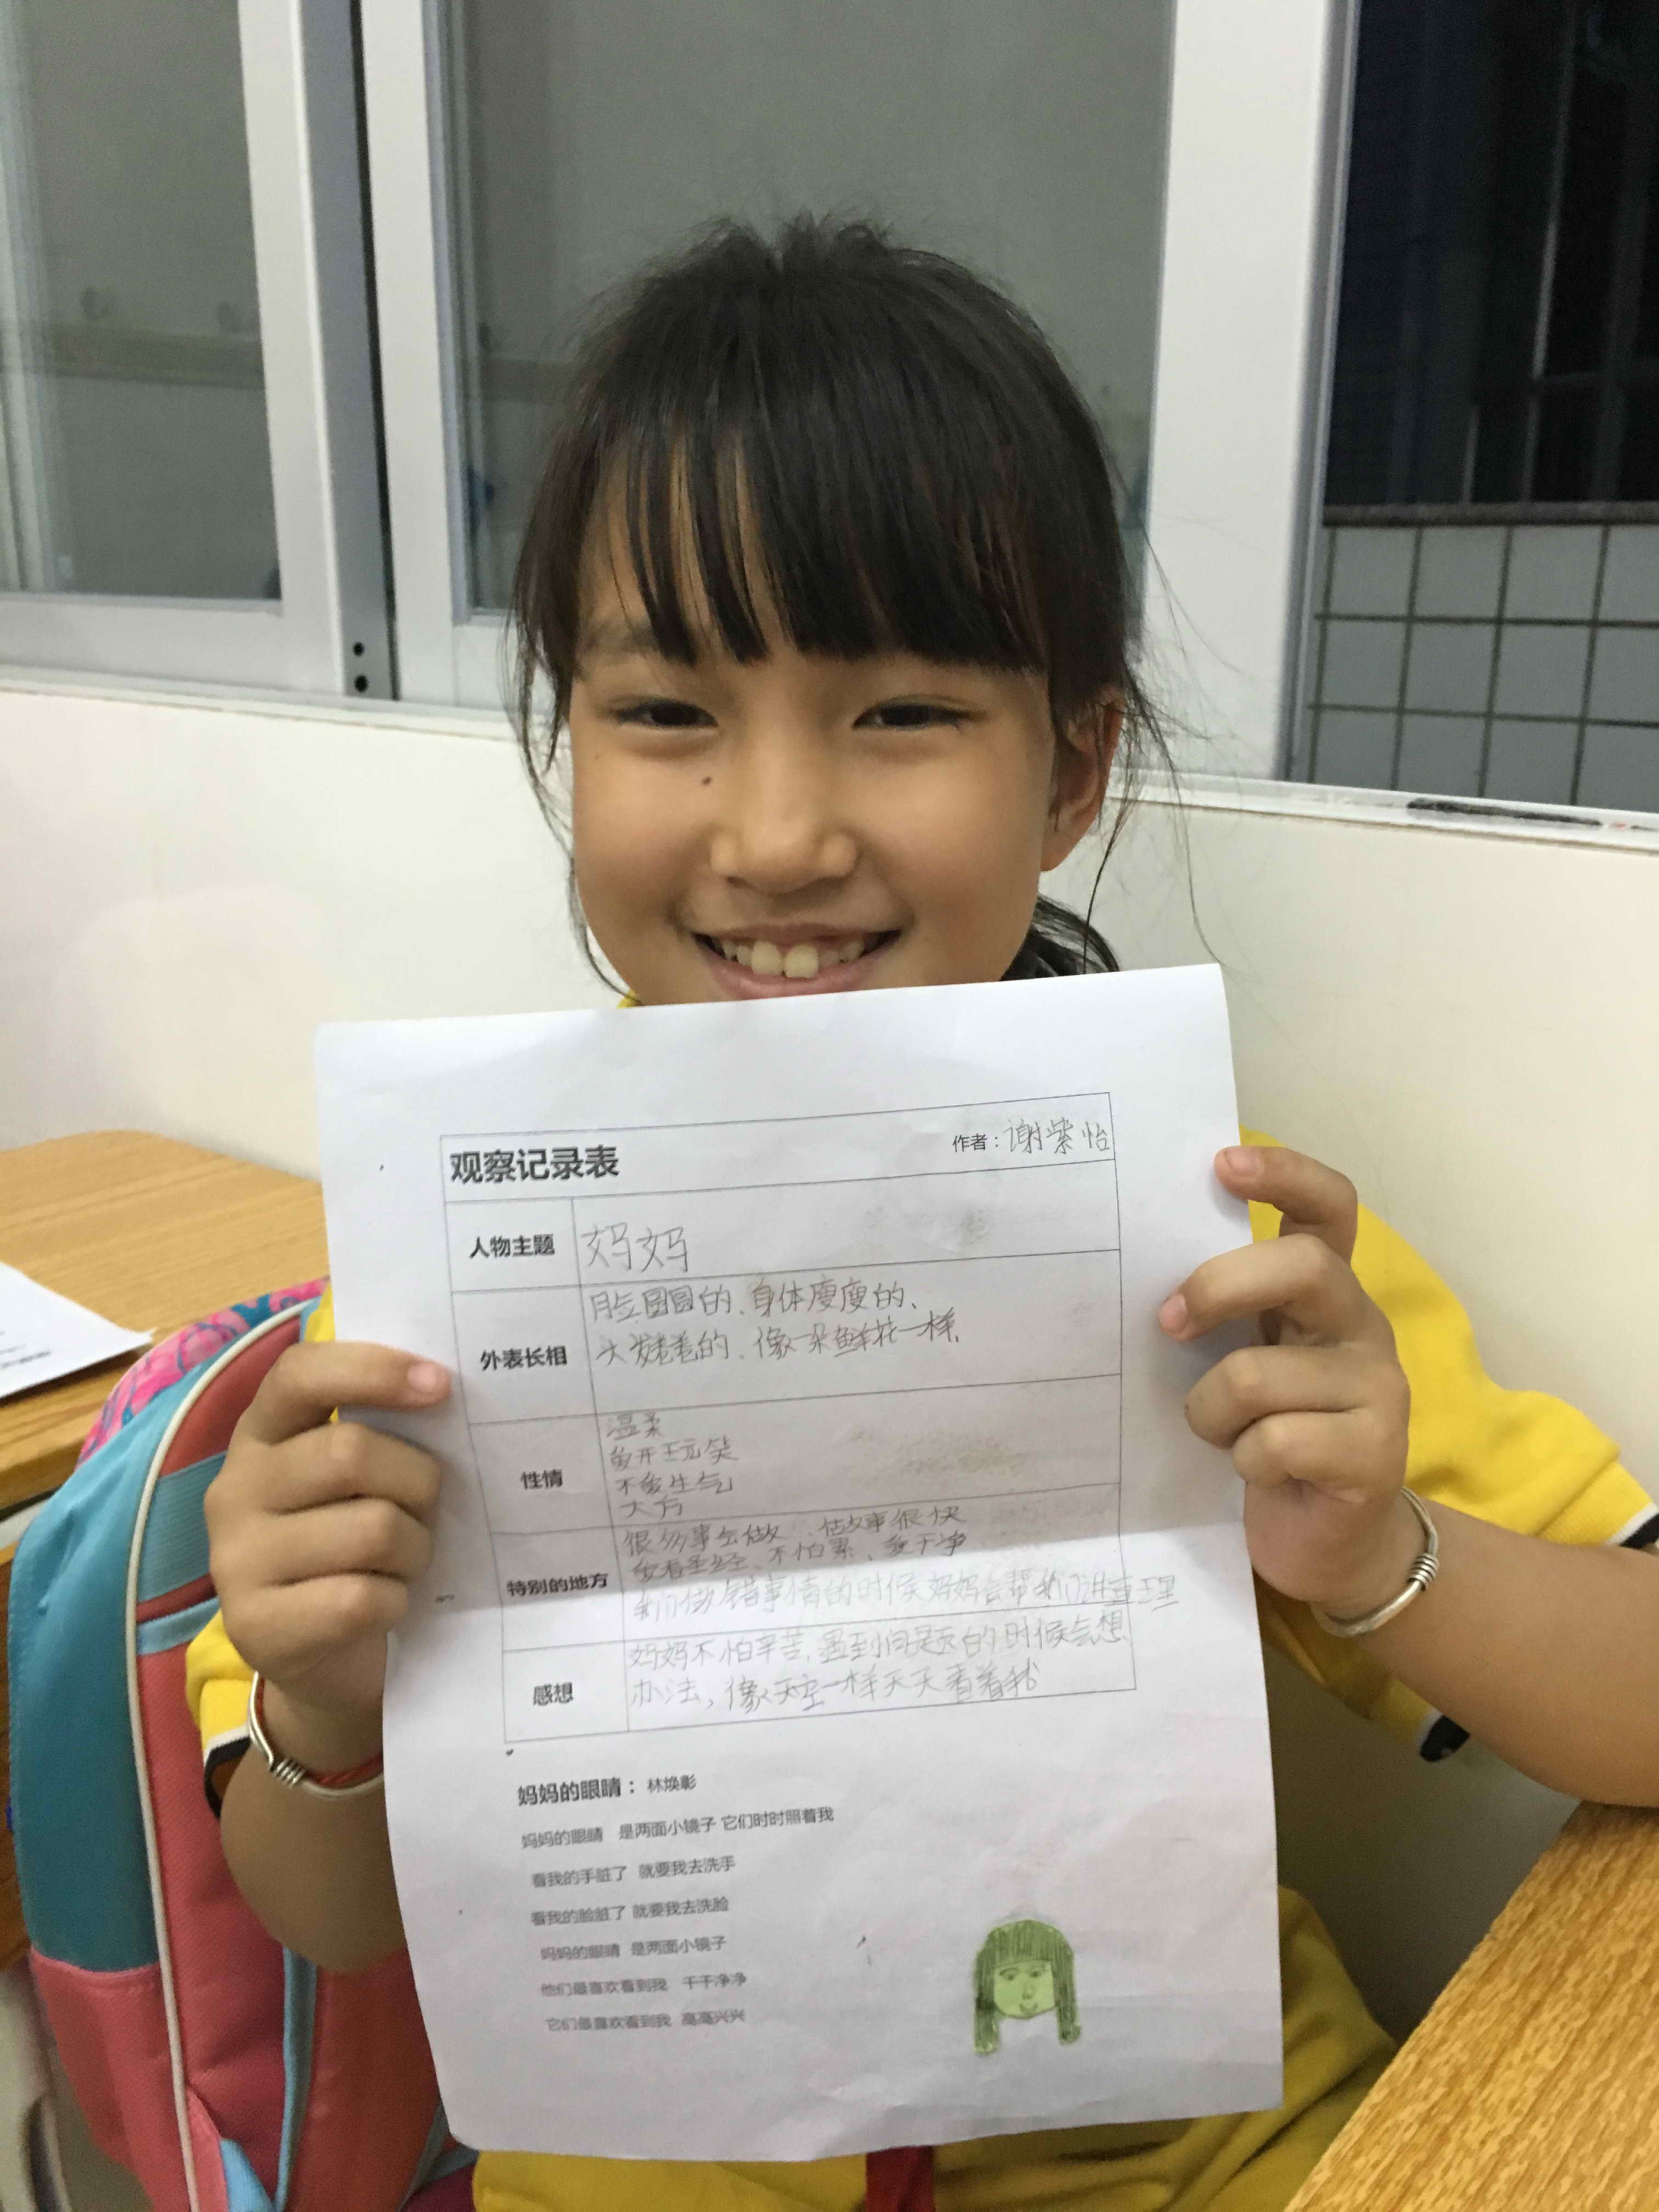 观察记录表 作者：谢紫怡
人物主题 妈妈
外表长相 脸圆圆的、身体瘦瘦的、
头发卷卷的、像一朵鲜花一样
性情 温柔
爱开玩笑
不爱生气
大方
特别的地方 很多事会做 做事很快
爱看圣经、不怕累、爱干净
我们做错事情的时候妈妈会帮我们讲道理
感想 妈妈不怕辛苦，遇到问题的时候会想
办法，像天空一样天天看着我
妈妈的眼睛：林焕彰
妈妈的眼睛 是两面小镜子 它们时时照着我
看我的手脏了 就要我去洗手
看我的脸脏了 就要我去洗脸
妈妈的眼睛 是两面小镜子
他们最喜欢看到我 干干净净
它们最喜欢看到我 高高兴兴